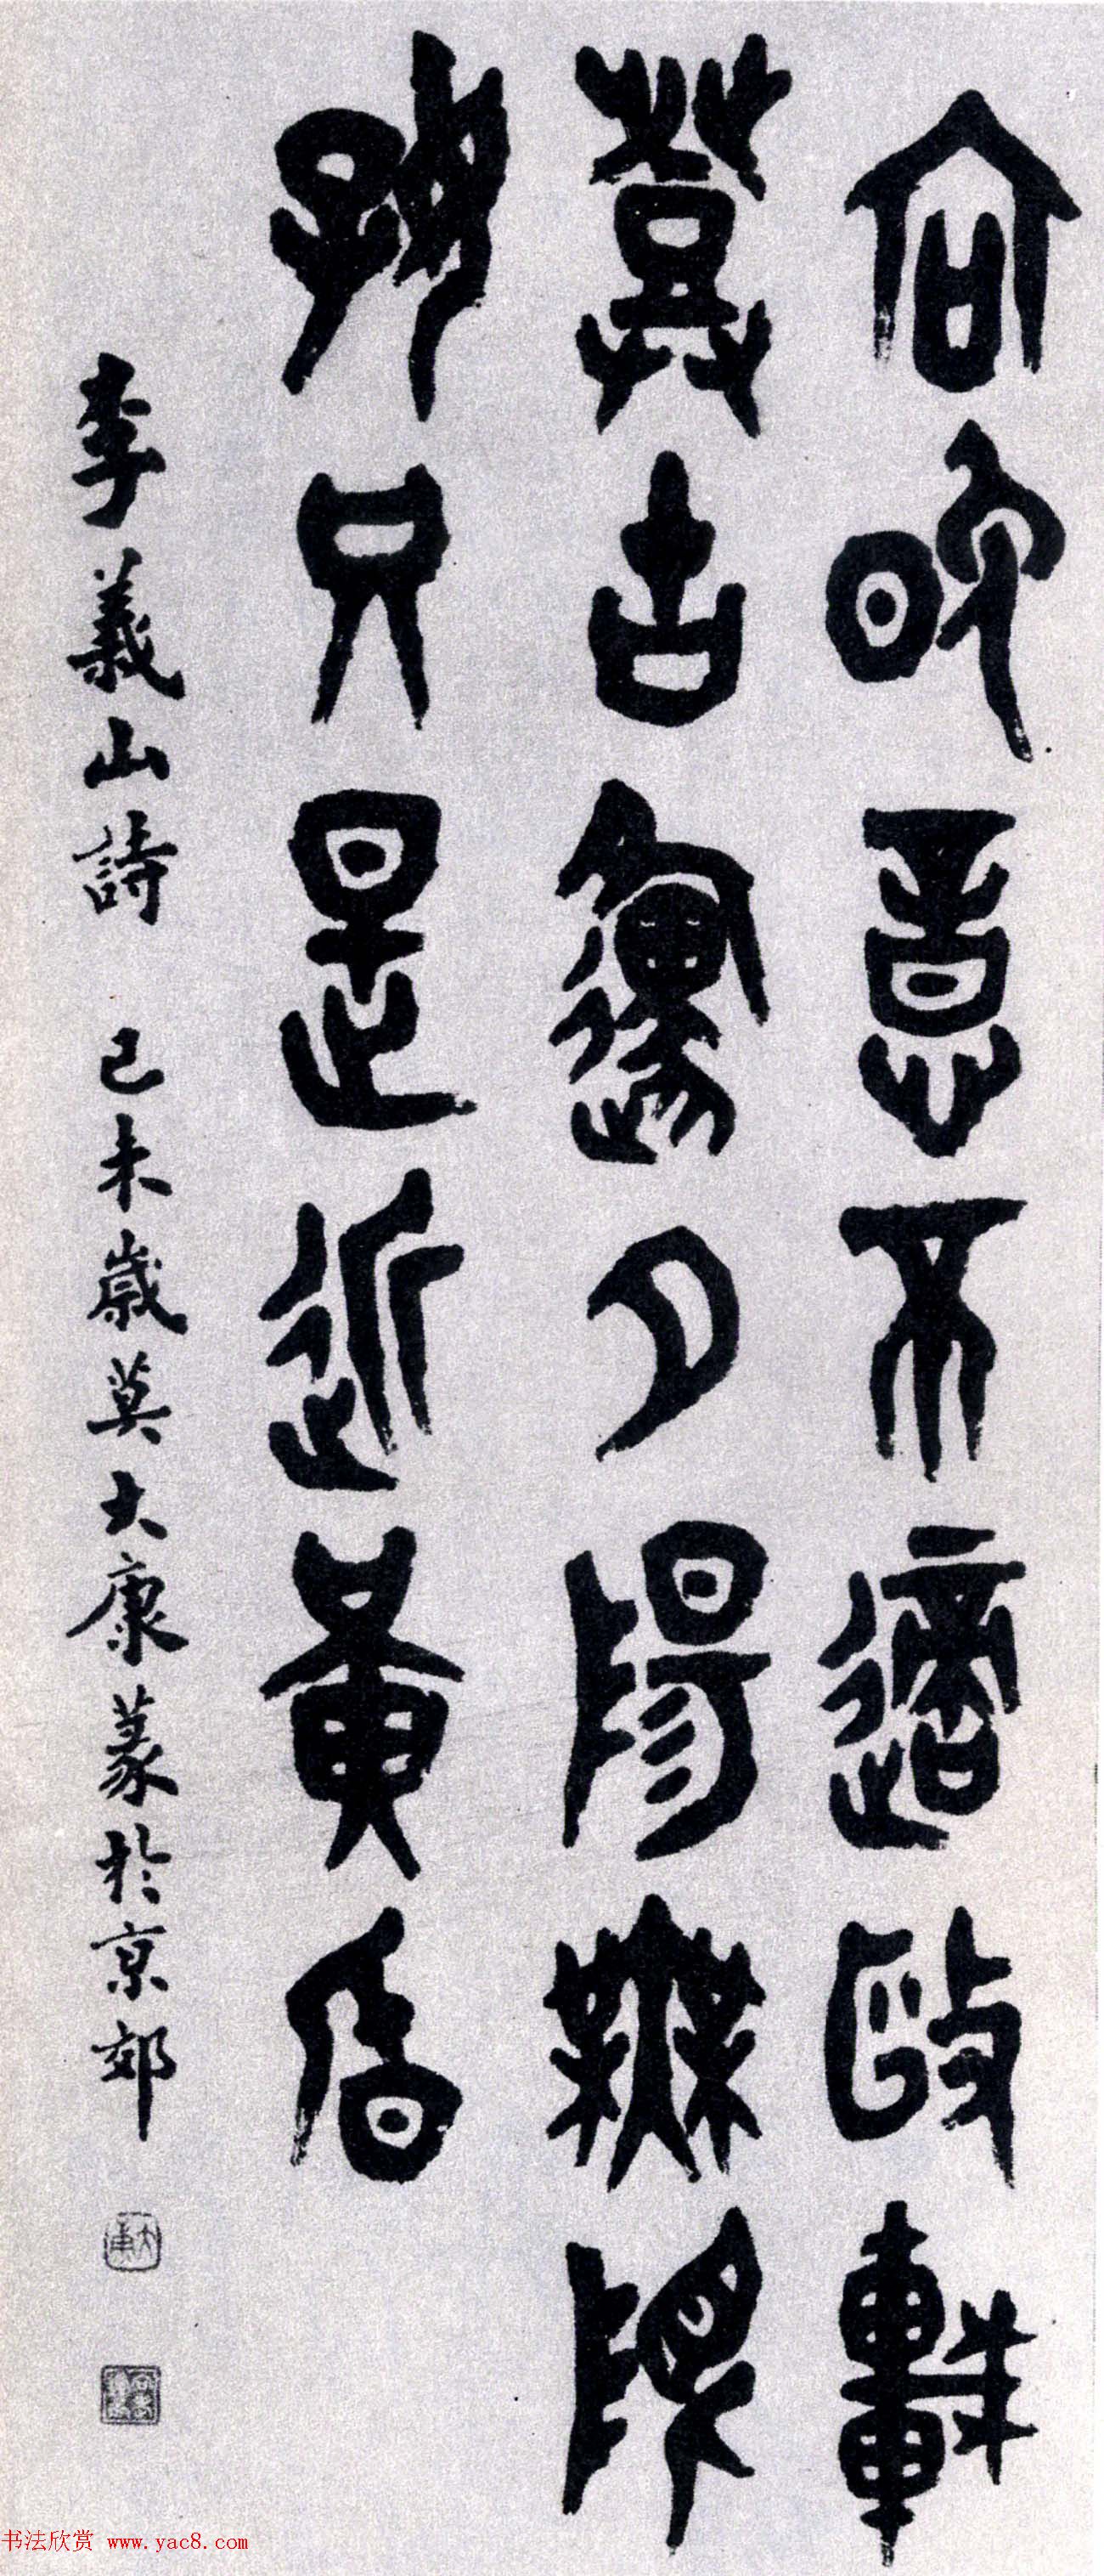 向晚意不適敺車
登古邍夕陽無限
好只是近黃昏
李義山詩 己未歲莫大康篆於京郊
大康
书法欣赏 www.yac8.com